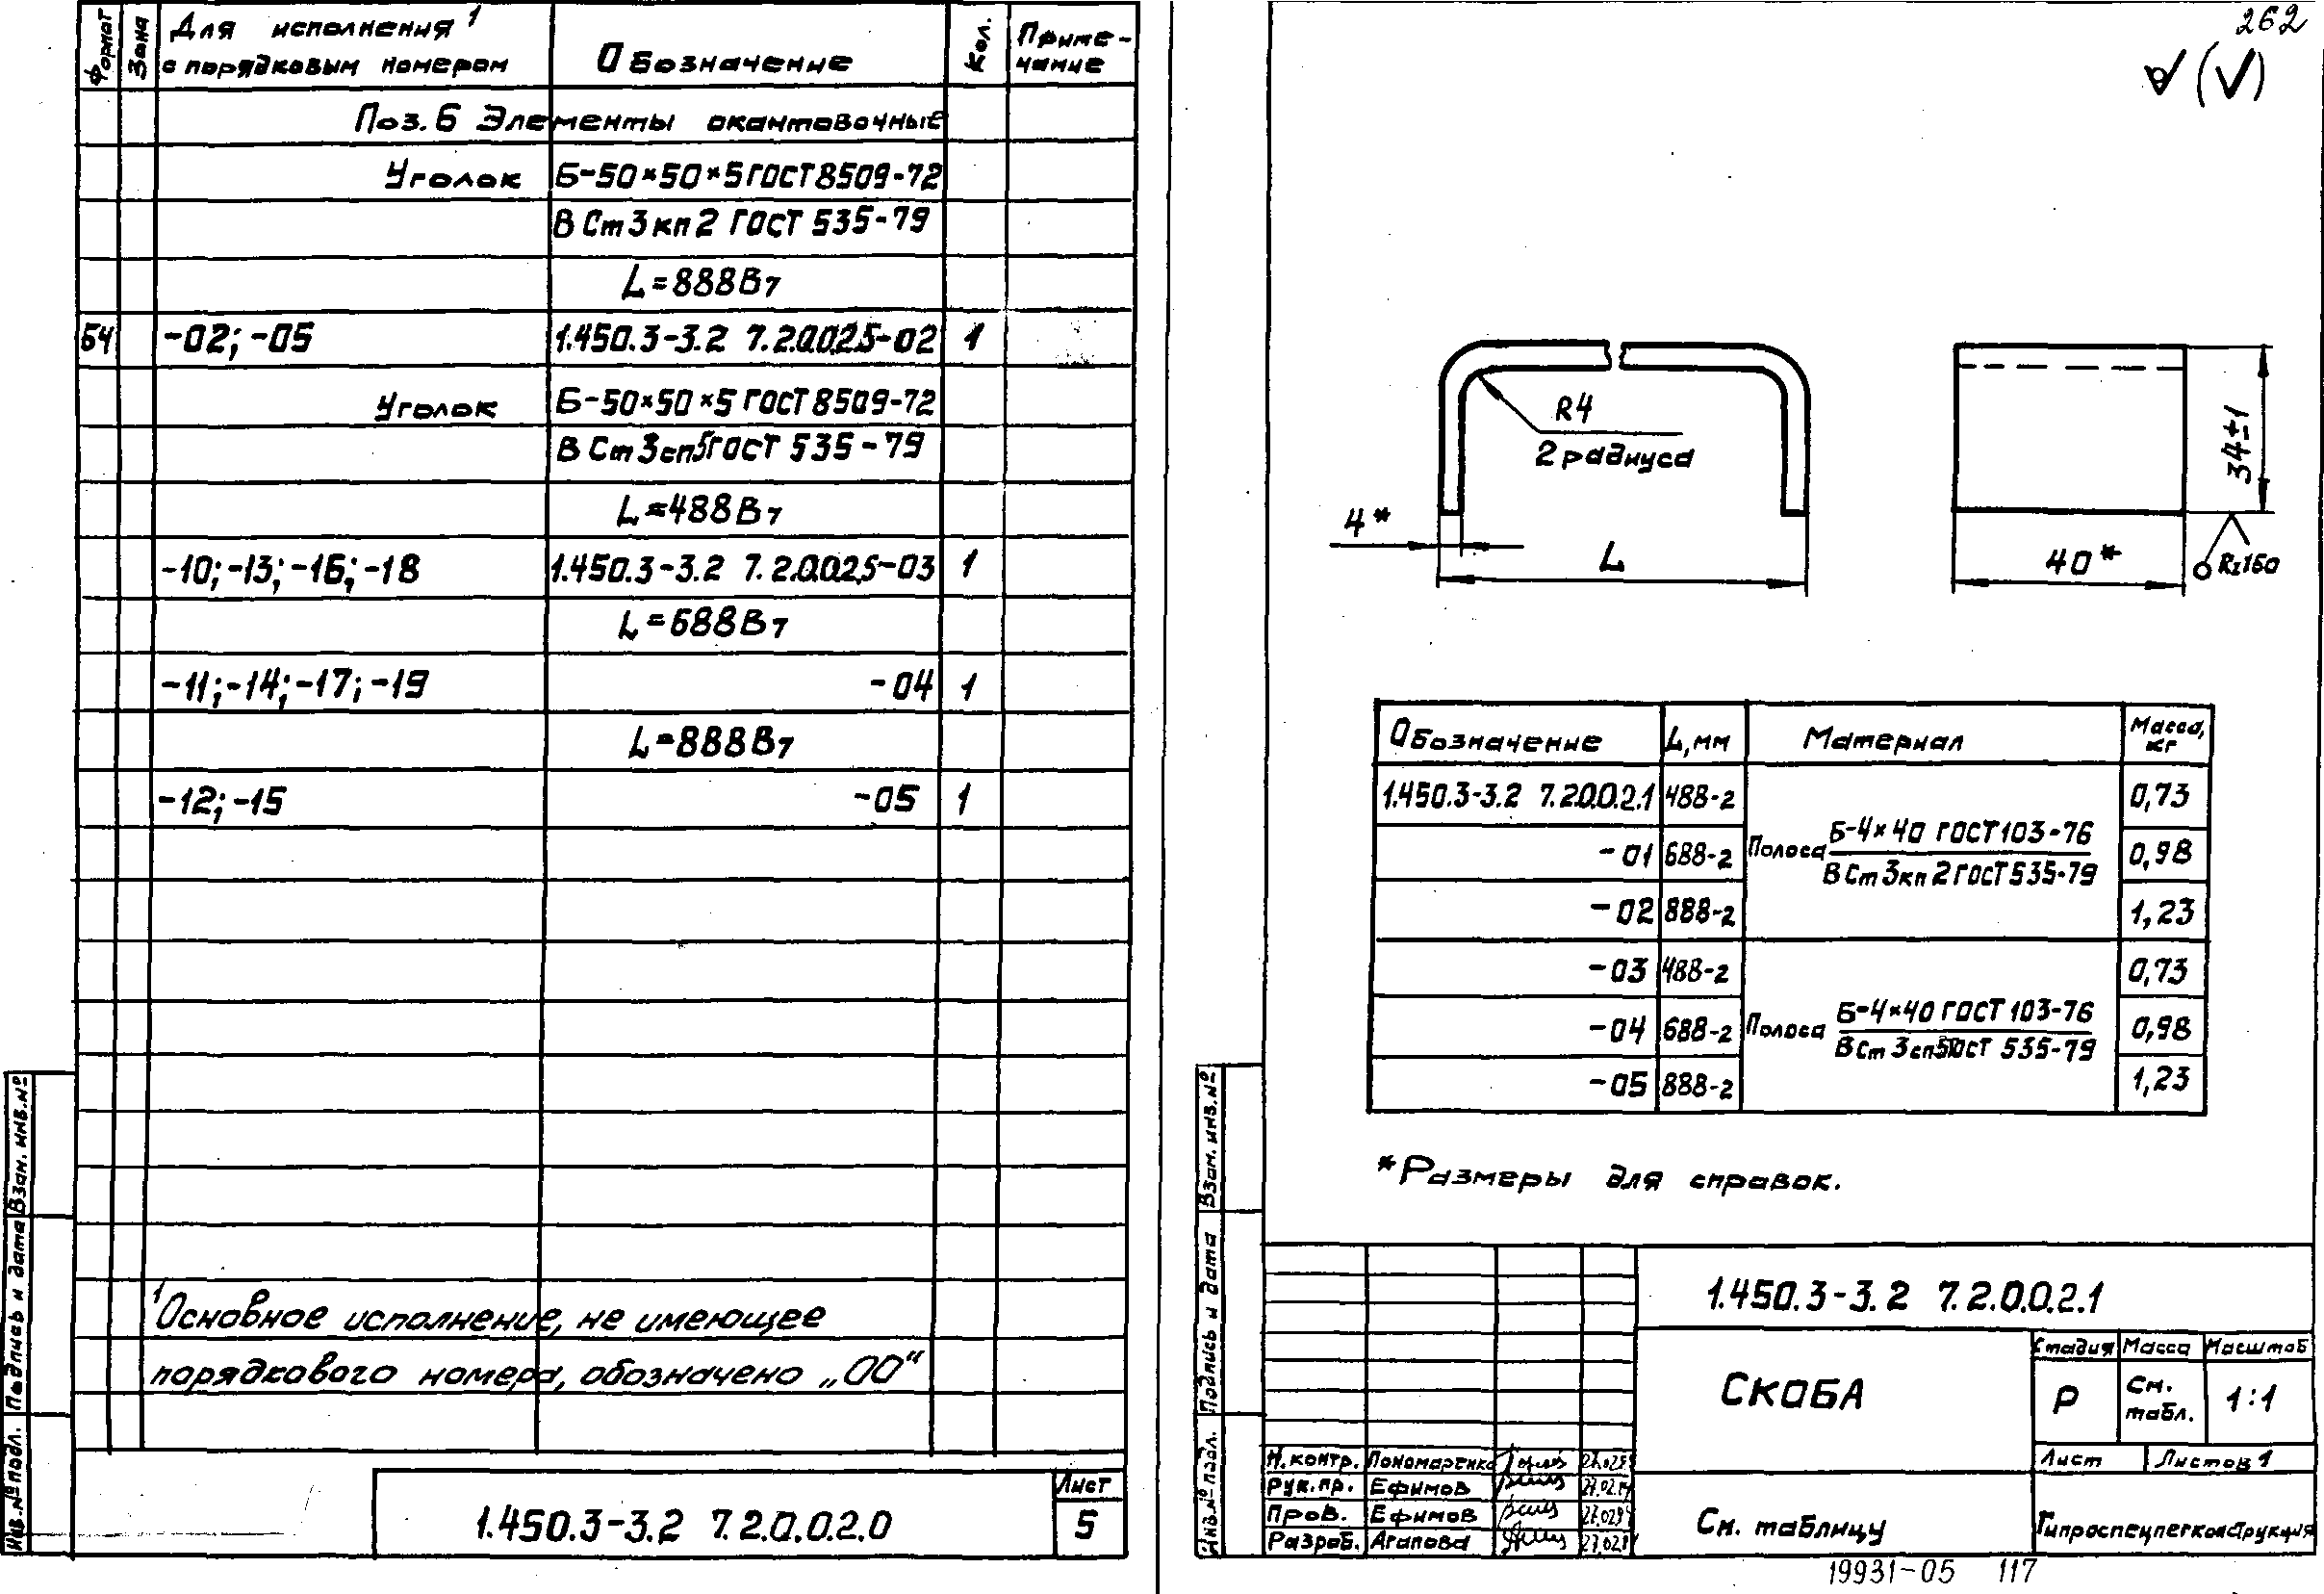 Формат Зона Для исполнения¹ с порядковым номером Обозначение Кол. Приме-чание
Поз. 6 Элементы окантовочные
Уголок Б-50×50×5 ГОСТ 8509-72
В Ст 3 кп 2 ГОСТ 535-79
L=888В7
БЧ -02; -05 1.450.3-3.2 7.2.0.0.2.5-02 1
Уголок Б-50×50×5 ГОСТ 8509-72
В Ст 3 сп5 ГОСТ 535-79
L=488В7
-10; -13; -16; -18 1.450.3-3.2 7.2.0.0.2.5-03 1
L=688В7
-11; -14; -17; -19 -04 1
L=888В7
-12; -15 -05 1
¹Основное исполнение, не имеющее
порядкового номера, обозначено „00“
Инв.№ подл. Подпись и дата Взам. инв.№
1.450.3-3.2 7.2.0.0.2.0
Лист
5
262
(√)
R4
2 радиуса
4*
L
40*
34±1
Rz160
Обозначение L, мм Материал Масса, кг
1.450.3-3.2 7.2.0.0.2.1 488-2 0,73
-01 688-2 Полоса Б-4×40 ГОСТ 103-76 0,98
В Ст 3 кп 2 ГОСТ 535-79
-02 888-2 1,23
-03 488-2 0,73
-04 688-2 Полоса Б-4×40 ГОСТ 103-76 0,98
В Ст 3 сп5 ГОСТ 535-79
-05 888-2 1,23
*Размеры для справок.
Инв.№ подл. Подпись и дата Взам. инв.№
1.450.3-3.2 7.2.0.0.2.1
СКОБА
Стадия Масса Масштаб
Р См. табл. 1:1
Лист Листов 1
Н.контр. Пономаренко
Рук.пр. Ефимов
Пров. Ефимов
Разраб. Агапова
См. таблицу
Гипроспецлегконструкция
19931-05 117